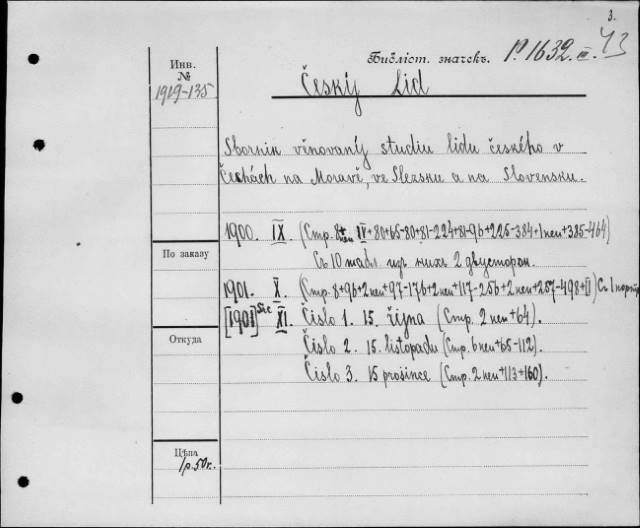 3.
Библіот. значекъ. P. 1632. III. 43
Инв.
№
1919-135
Český Lid
Sborník věnovaný studiu lidu českého v
Čechách na Moravě, ve Slezsku a na Slovensku.
1900. IX. (Стр. IV+80+65-80+81-224+81-96+225-384+1нен+385-464)
Съ 10 табл. изъ нихъ 2 двустор.
По заказу
1901. X. (Стр. 8+96+2нен+97-176+2нен+117-256+2нен+257-498+II) Съ 1 портр
[1901 Sic XI. Číslo 1. 15. října (Стр. 2нен+64).
Откуда
Číslo 2. 15. listopadu (Стр. 6нен+65-112).
Číslo 3. 15 prosince (Стр. 2нен+113+160).
Цѣна
1р.50к.